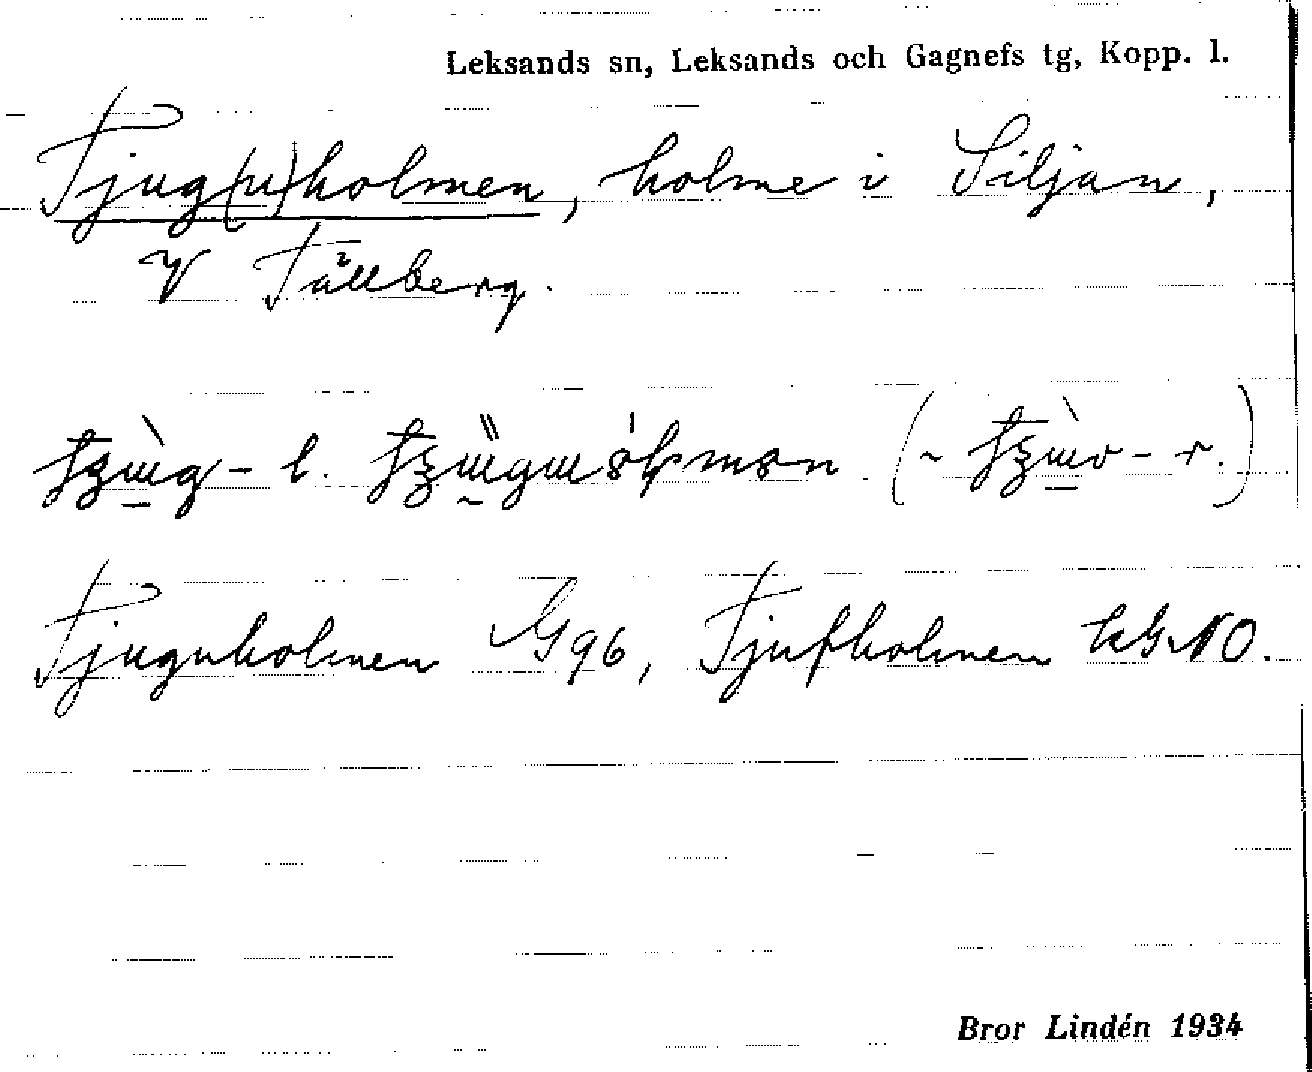 Leksands sn, Leksands och Gagnefs tg, Kopp. l.
Tjug(u)holmen, holme i Siljan,
V Tällberg.
l.
Tjuguholmen G96, Tjufholmen
Bror Lindén 1934